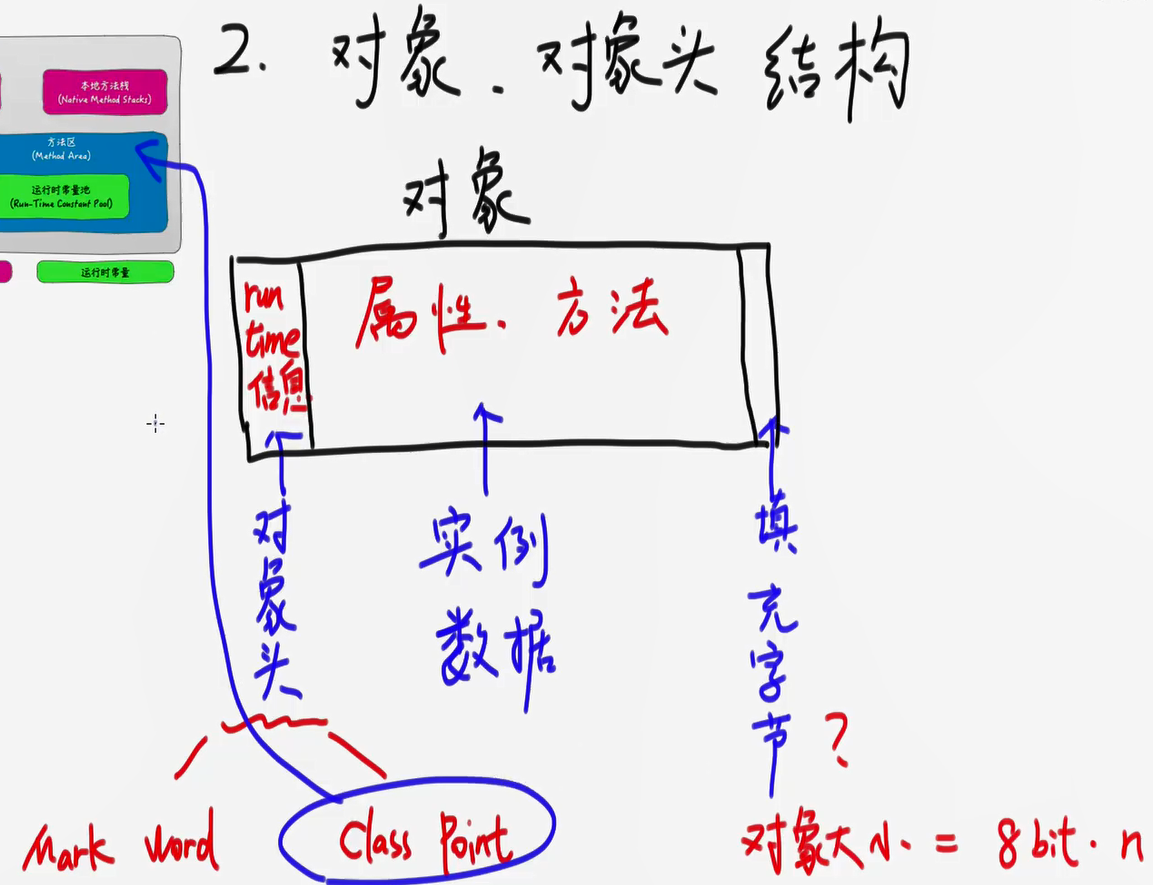 2. 对象、对象头 结构
本地方法栈
(Native Method Stacks)
方法区
(Method Area)
运行时常量池
(Run-Time Constant Pool)
运行时常量
对象
run
time
信息
属性、方法
对象头
实例
数据
填充字节?
Mark word
Class Point
对象大小 = 8bit·n